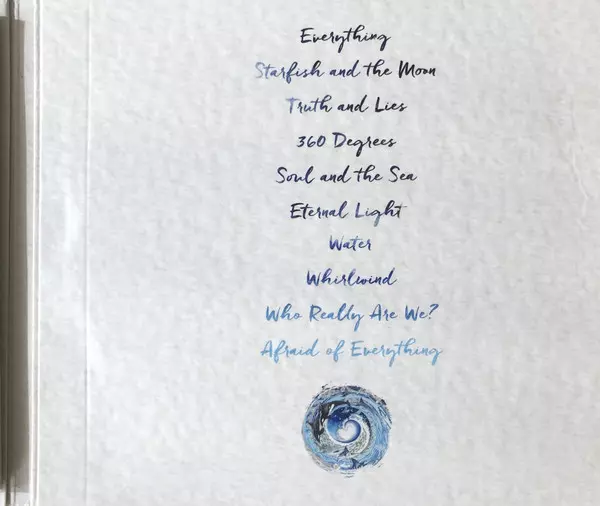 Everything
Starfish and the Moon
Truth and Lies
360 Degrees
Soul and the Sea
Eternal Light
Water
Whirlwind
Who Really Are We?
Afraid of Everything